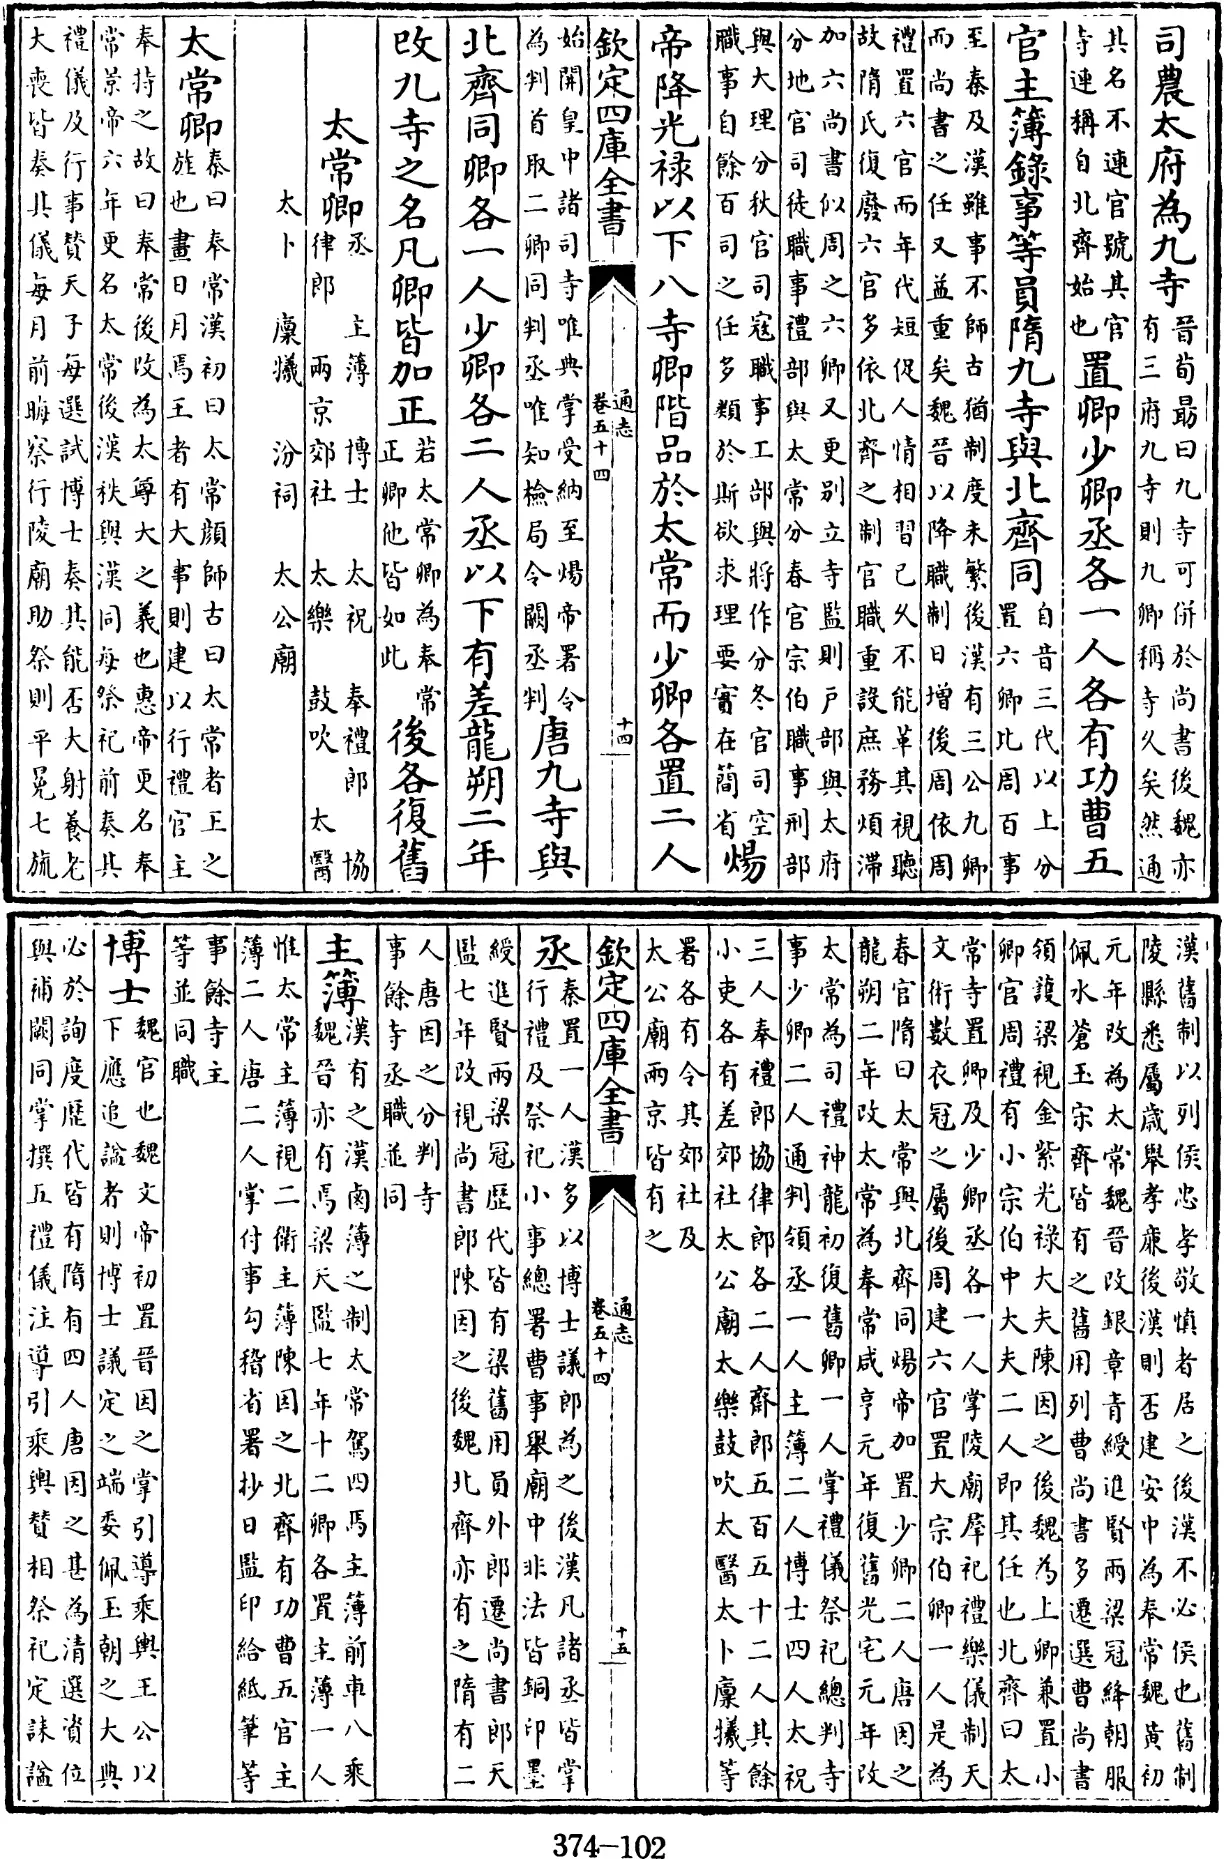 司農太府為九寺晉荀朂曰九寺可併於尚書後魏亦
有三府九寺則九卿稱寺久矣然通
其名不連官號其官
寺連稱自北齊始也置卿少卿丞各一人各有功曹五
官主簿錄事等員隋九寺與北齊同自昔三代以上分
置六卿比周百事
至秦及漢雖事不師古猶制度未繁後漢有三公九卿
而尚書之任又益重矣魏晉以降職制日增後周依周
禮置六官而年代短促人情相習已久不能革其視聽
故隋氏復廢六官多依北齊之制官職重設庶務煩滯
加六尚書似周之六卿又更别立寺監則戶部與太府
分地官司徒職事禮部與太常分春官宗伯職事刑部
與大理分秋官司寇職事工部與將作分冬官司空
職事自餘百司之任多類於斯欲求理要實在簡省煬
帝降光禄以下八寺卿階品於太常而少卿各置二人
欽定四庫全書 通志 卷五十四 十四
始開皇中諸司寺唯典掌受納至煬帝署令
為判首取二卿同判丞唯知檢局令闕丞判唐九寺與
北齊同卿各一人少卿各二人丞以下有差龍朔二年
改九寺之名凡卿皆加正若太常卿為奉常
正卿他皆如此後各復舊
太常卿丞 主簿 博士 太祝 奉禮郎 協
律郎 兩京郊社 太樂 鼓吹 太醫
太卜 廩犧 汾祠 太公廟
太常卿秦曰奉常漢初曰太常顔師古曰太常者王之
旌也畫日月焉王者有大事則建以行禮官主
奉持之故曰奉常後改為太尊大之義也惠帝更名奉
常景帝六年更名太常後漢秩與漢同每祭祀前奏其
禮儀及行事賛天子每選試博士奏其能否大射養老
大喪皆奏其儀每月前晦察行陵廟助祭則平冕七旒
漢舊制以列侯忠孝敬慎者居之後漢不必侯也舊制
陵縣悉屬歲舉孝廉後漢則否建安中為奉常魏黄初
元年改為太常魏晉改銀章青綬進賢兩梁冠絳朝服
佩水蒼玉宋齊皆有之舊用列曹尚書多遷選曹尚書
領護梁視金紫光祿大夫陳因之後魏為上卿兼置小
卿官周禮有小宗伯中大夫二人即其任也北齊曰太
常寺置卿及少卿丞各一人掌陵廟羣祀禮樂儀制天
文術數衣冠之屬後周建六官置大宗伯卿一人是為
春官隋曰太常與北齊同煬帝加置少卿二人唐因之
龍朔二年改太常為奉常咸亨元年復舊光宅元年改
太常為司禮神龍初復舊卿一人掌禮儀祭祀總判寺
事少卿二人通判領丞一人主簿二人博士四人太祝
三人奉禮郎協律郎各二人齋郎五百五十二人其餘
小吏各有差郊社太公廟太樂鼓吹太醫太卜廩犧等
署各有令其郊社及
太公廟兩京皆有之
欽定四庫全書 通志 卷五十四 十五
丞秦置一人漢多以博士議郎為之後漢凡諸丞皆掌
行禮及祭祀小事總署曹事舉廟中非法皆銅印墨
綬進賢兩梁冠歷代皆有梁舊用員外郎遷尚書郎天
監七年改視尚書郎陳因之後魏北齊亦有之隋有二
人唐因之分判寺
事餘寺丞職並同
主簿漢有之漢鹵簿之制太常駕四馬主簿前車八乘
魏晉亦有焉梁天監七年十二卿各置主簿一人
惟太常主薄視二衛主薄陳因之北齊有功曹五官主
薄二人唐二人掌付事勾稽省署抄日監印給紙筆等
事餘寺主
等並同職
博士魏官也魏文帝初置晉因之掌引導乘輿王公以
下應追諡者則博士議定之端委佩玉朝之大典
必於詢度歷代皆有隋有四人唐因之甚為清選資位
與補闕同掌撰五禮儀注導引乘輿賛相祭祀定誄諡
374-102